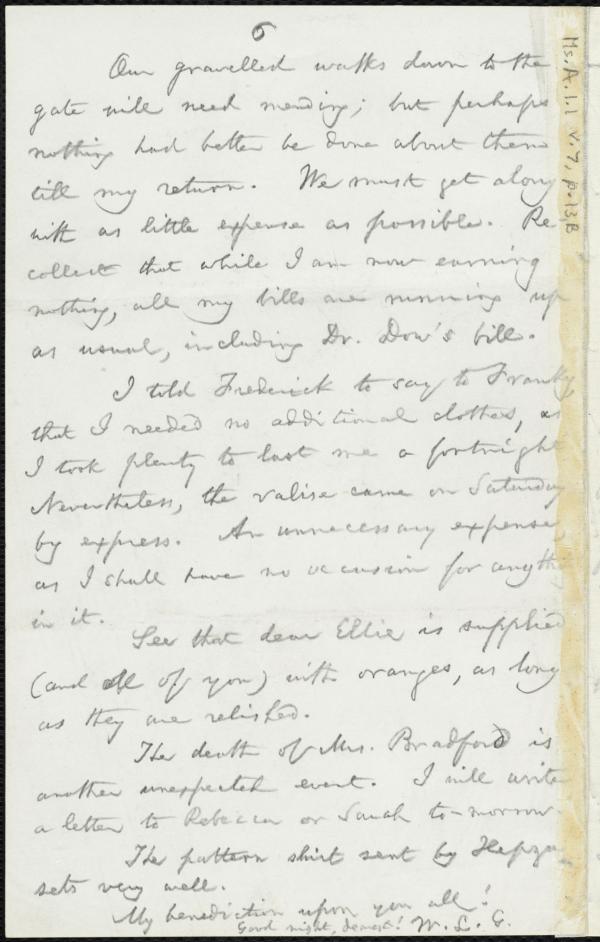 6
Our gravelled walks down to the
gate will need mending; but perhaps
nothing had better be done about them
till my return. We must get along
with as little expense as possible. Re-
collect that while I am now earning
nothing, all my bills are running up
as usual, including Dr. Dow's bill.
I told Frederick to say to Franky,
that I needed no additional clothes, as
I took plenty to last me a fortnight.
Nevertheless, the valise came on Saturday
by express. An unnecessary expense,
as I shall have no occasion for anything
in it.
See that dear Ellie is supplied
(and all of you) with oranges, as long
as they are relished.
The death of Mrs. Bradford is
another unexpected event. I will write
a letter to Rebecca or Sarah to-morrow.
The pattern shirt sent by Hepza
sets very well.
My benediction upon you all!
Good night, dearest! W. L. G.
Ms. A. 1. 1 v. 7, p. 13B